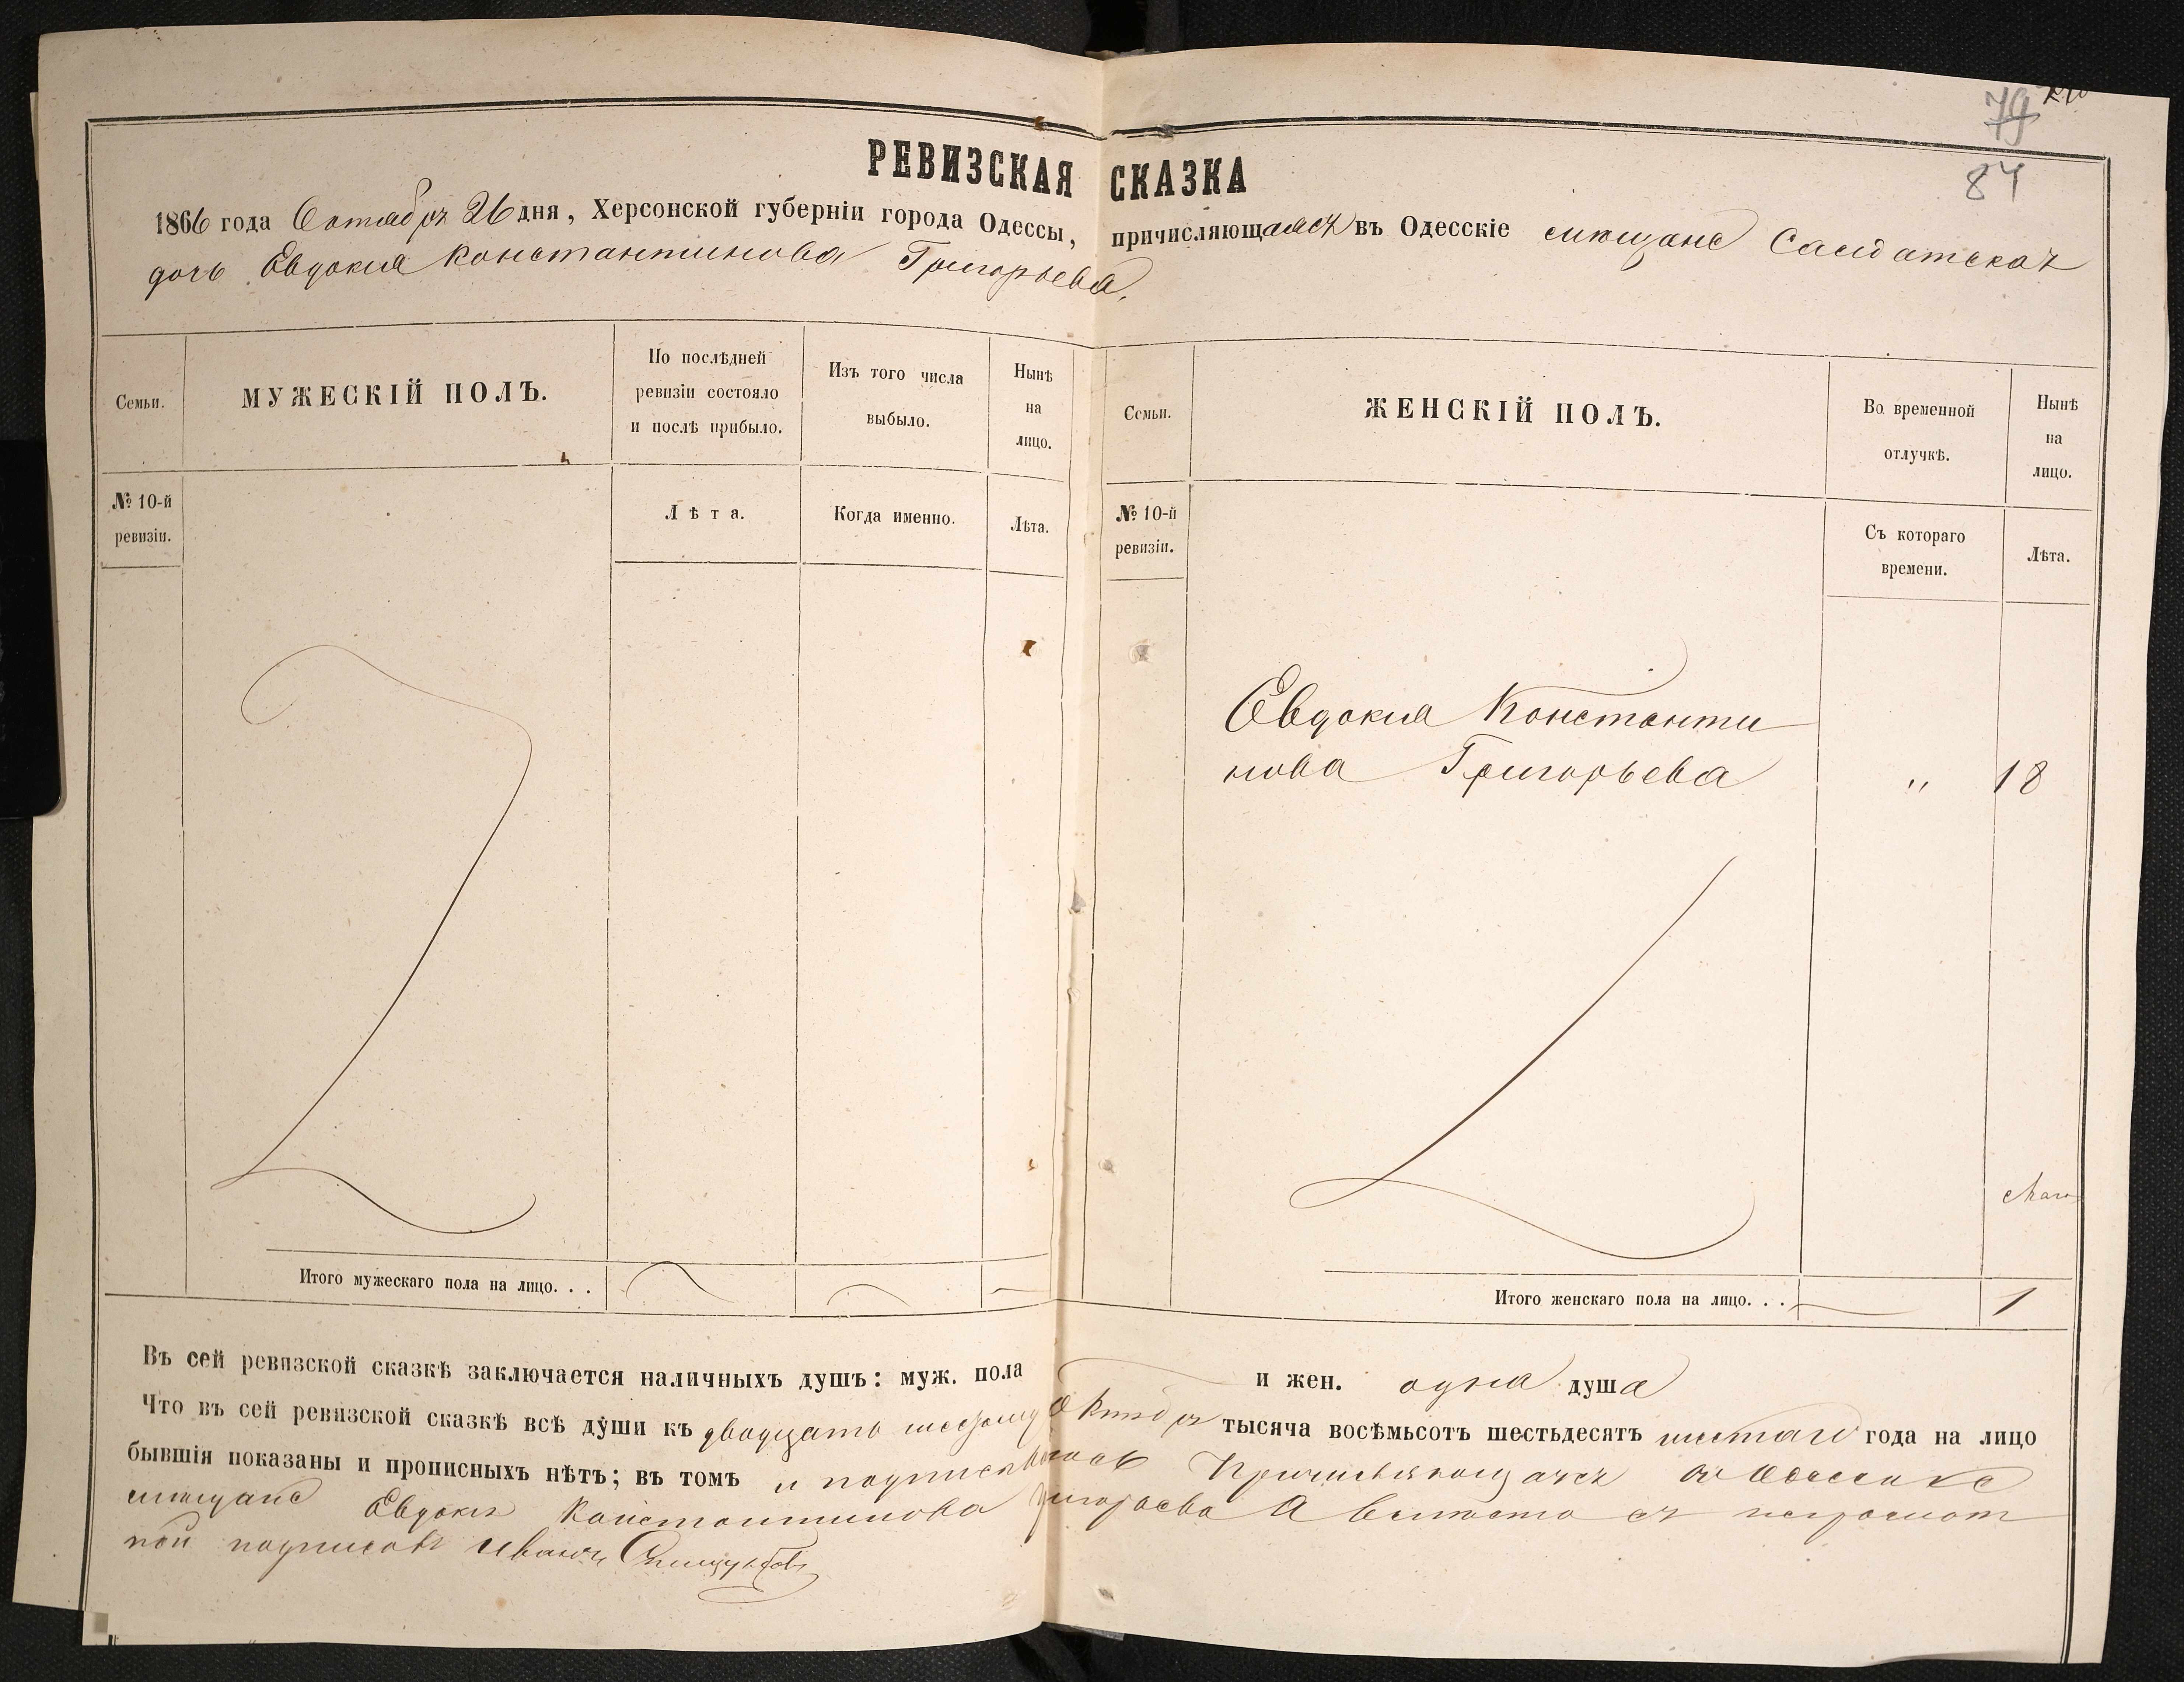 79
84
РЕВИЗСКАЯ СКАЗКА
1866 года Октября 26 дня, Херсонской губерніи города Одессы, причисляющаяся въ Одесскіе мѣщане Салдатская
дочь Евдокия Константинова Григорьева.
Семьи.
МУЖЕСКІЙ ПОЛЪ.
По послѣдней
ревизіи состояло
и послѣ прибыло.
Изъ того числа
выбыло.
Нынѣ
на
лицо.
№ 10-й
ревизіи.
Лѣта.
Когда именно.
Лѣта.
Семьи.
ЖЕНСКІЙ ПОЛЪ.
Во временной
отлучкѣ.
Нынѣ
на
лицо.
№ 10-й
ревизіи.
Съ котораго
времени.
Лѣта.
Евдокия Константи
нова Григорьева " 18
Итого мужескаго пола на лицо. . .
Итого женскаго пола на лицо. . . 1
Въ сей ревизской сказкѣ заключается наличныхъ душъ: муж. пола и жен. одна душа
Что въ сей ревизской сказкѣ всѣ души къ двадцать шестому Октября тысяча восѣмьсотъ шестьдесятъ шестаго года на лицо
бывшія показаны и прописныхъ нѣтъ; въ томъ и подписываюсь Причисляющаяся въ Одесские
мещане Евдокия Константинова Григорьева А вместо ея неграмот
ной подписалъ Иванъ